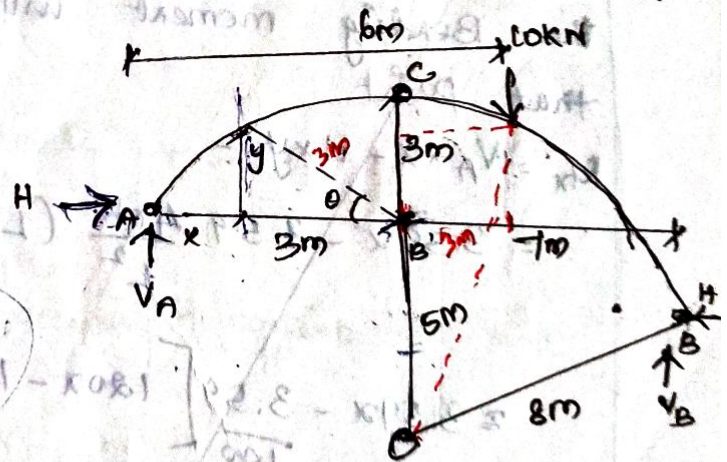 6m
10KN
C
3m
y
3m
H
A
θ
x
3m
B'
3m
7m
VA
5m
H
B
VB
8m
O